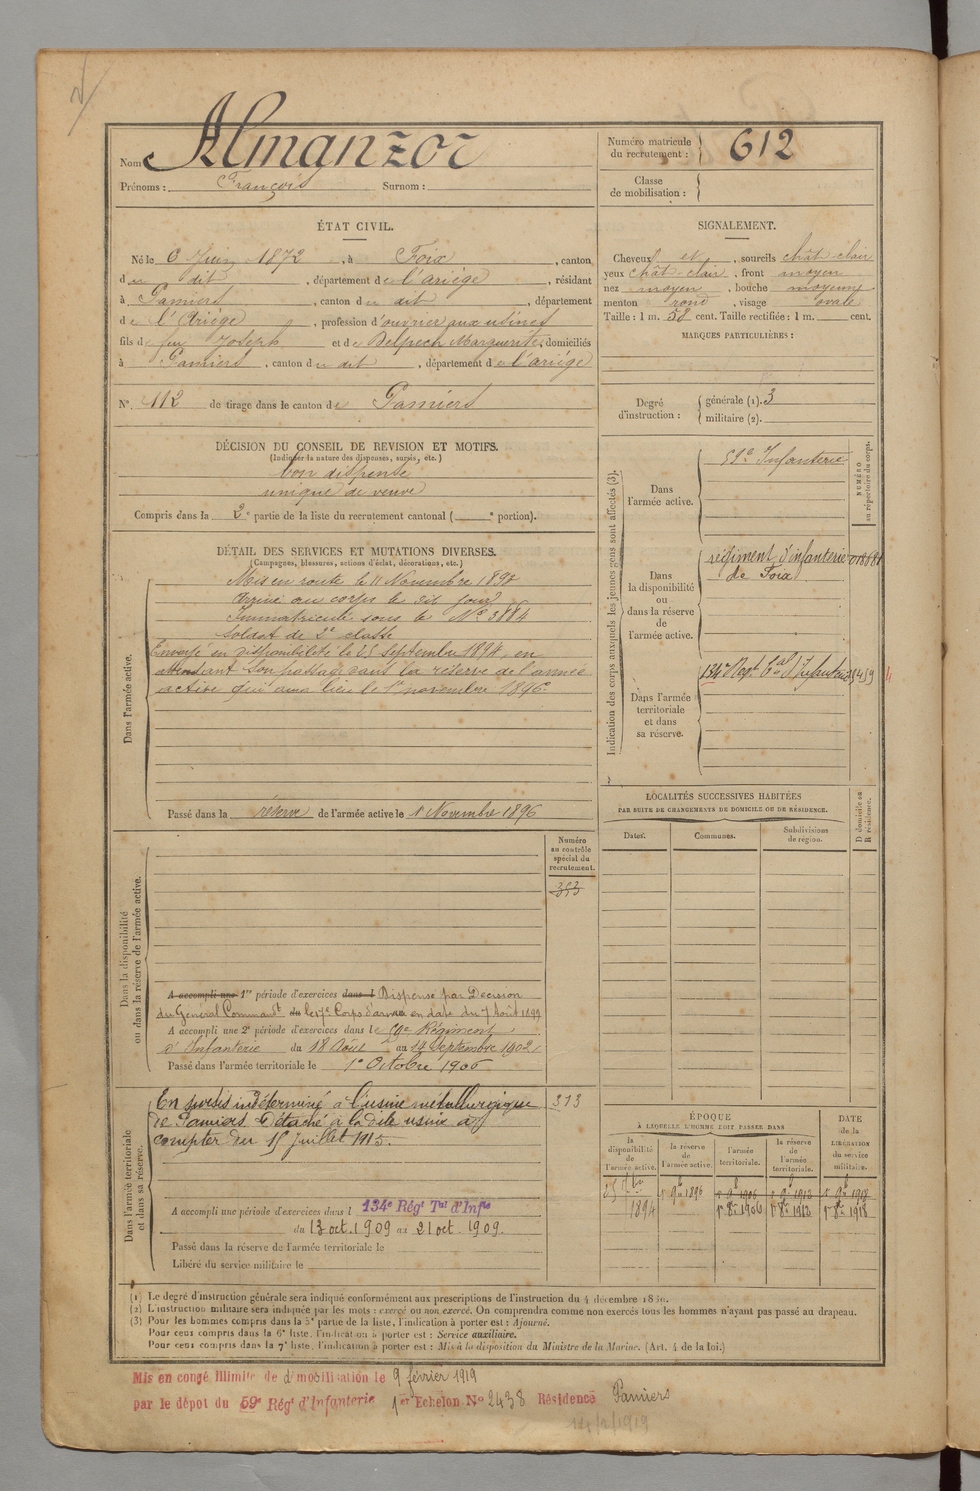 Nom Almanzor
Prénoms : François Surnom :
Numéro matricule
du recrutement : 612
Classe
de mobilisation :
ÉTAT CIVIL.
Né le 6 Juin 1872, à Foix, canton
du dit, département de l'ariège, résidant
à Pamiers, canton du dit, département
de l'Ariège, profession d'ouvrier aux usines
fils de feu Joseph et de Delpech Marguerite, domiciliés
à Pamiers, canton du dit, département de l'ariège
N° 112 de tirage dans le canton de Pamiers
SIGNALEMENT.
Cheveux et, sourcils chât-clair
yeux chât-clair, front moyen
nez moyen, bouche moyenne
menton rond, visage ovale
Taille : 1 m. 58 cent. Taille rectifiée : 1 m. cent.
MARQUES PARTICULIÈRES :
Degré
d'instruction :
générale (1). 3
militaire (2).
DÉCISION DU CONSEIL DE REVISION ET MOTIFS.
(Indiquer la nature des dispenses, sursis, etc.)
bon dispensé
unique de veuve
Compris dans la 2e partie de la liste du recrutement cantonal ( e portion).
DÉTAIL DES SERVICES ET MUTATIONS DIVERSES.
(Campagnes, blessures, actions d'éclat, décorations, etc.)
Dans l'armée active.
Mis en route le 11 Novembre 1893
Arrivé au corps le dit jour
Immatriculé sous le N° 3884
Soldat de 2e classe
Envoyé en disponibilité le 25 septembre 1894, en
attendant son passage dans la réserve de l'armée
active qui aura lieu le 1er novembre 1896
Passé dans la réserve de l'armée active le 1er Novembre 1896
Indication des corps auxquels les jeunes gens sont affectés (3).
NUMÉRO
au répertoire du corps.
Dans
l'armée active.
59e Infanterie
Dans
la disponibilité
ou
dans la réserve
de
l'armée active.
régiment d'infanterie
de Foix
Dans l'armée
territoriale
et dans
sa réserve.
134e Regt tal d'Infanterie
LOCALITÉS SUCCESSIVES HABITÉES
PAR SUITE DE CHANGEMENTS DE DOMICILE OU DE RÉSIDENCE.
D domicile ou
R résidence.
Dates. Communes. Subdivisions
de région.
Dans la disponibilité
ou dans la réserve de l'armée active.
Numéro
au contrôle
spécial du
recrutement.
393
A accompli une 1re période d'exercices dans l Dispensé par Décision
du Général Commandt le 17e Corps d'armée en date du 7 Août 1899
A accompli une 2e période d'exercices dans le 59e Régiment
d'Infanterie du 18 Août au 14 Septembre 1902
Passé dans l'armée territoriale le 1er Octobre 1906
Dans l'armée territoriale
et dans sa réserve.
En sursis indéterminé à l'usine métallurgique 313
de Pamiers. Détaché à la dite usine à
compter du 15 juillet 1915.
A accompli une période d'exercices dans l 134e Régt Tal d'Infie
du 13 oct. 1909 au 21 oct. 1909.
Passé dans la réserve de l'armée territoriale le
Libéré du service militaire le
ÉPOQUE
À LAQUELLE L'HOMME DOIT PASSER DANS
DATE
de la
LIBÉRATION
du service
militaire.
la
disponibilité
de
l'armée active.
la réserve
de
l'armée active.
l'armée
territoriale.
la réserve
de
l'armée
territoriale.
25 7bre 1er 9bre 1896 1er 9bre 1906 1er 9bre 1912 1er 9bre 1918
1894 1er 8bre 1906 1er 8bre 1912 1er 8bre 1918
(1) Le degré d'instruction générale sera indiqué conformément aux prescriptions de l'instruction du 4 décembre 1889.
(2) L'instruction militaire sera indiquée par les mots : exercé ou non exercé. On comprendra comme non exercés tous les hommes n'ayant pas passé au drapeau.
(3) Pour les hommes compris dans la 5e partie de la liste, l'indication à porter est : Ajourné.
Pour ceux compris dans la 6e liste, l'indication à porter est : Service auxiliaire.
Pour ceux compris dans la 7e liste, l'indication à porter est : Mis à la disposition du Ministre de la Marine. (Art. 4 de la loi.)
Mis en congé illimité de démobilisation le 9 février 1919
par le dépot du 59e Régt d'Infanterie 1er Echelon N° 2438 Résidence Pamiers